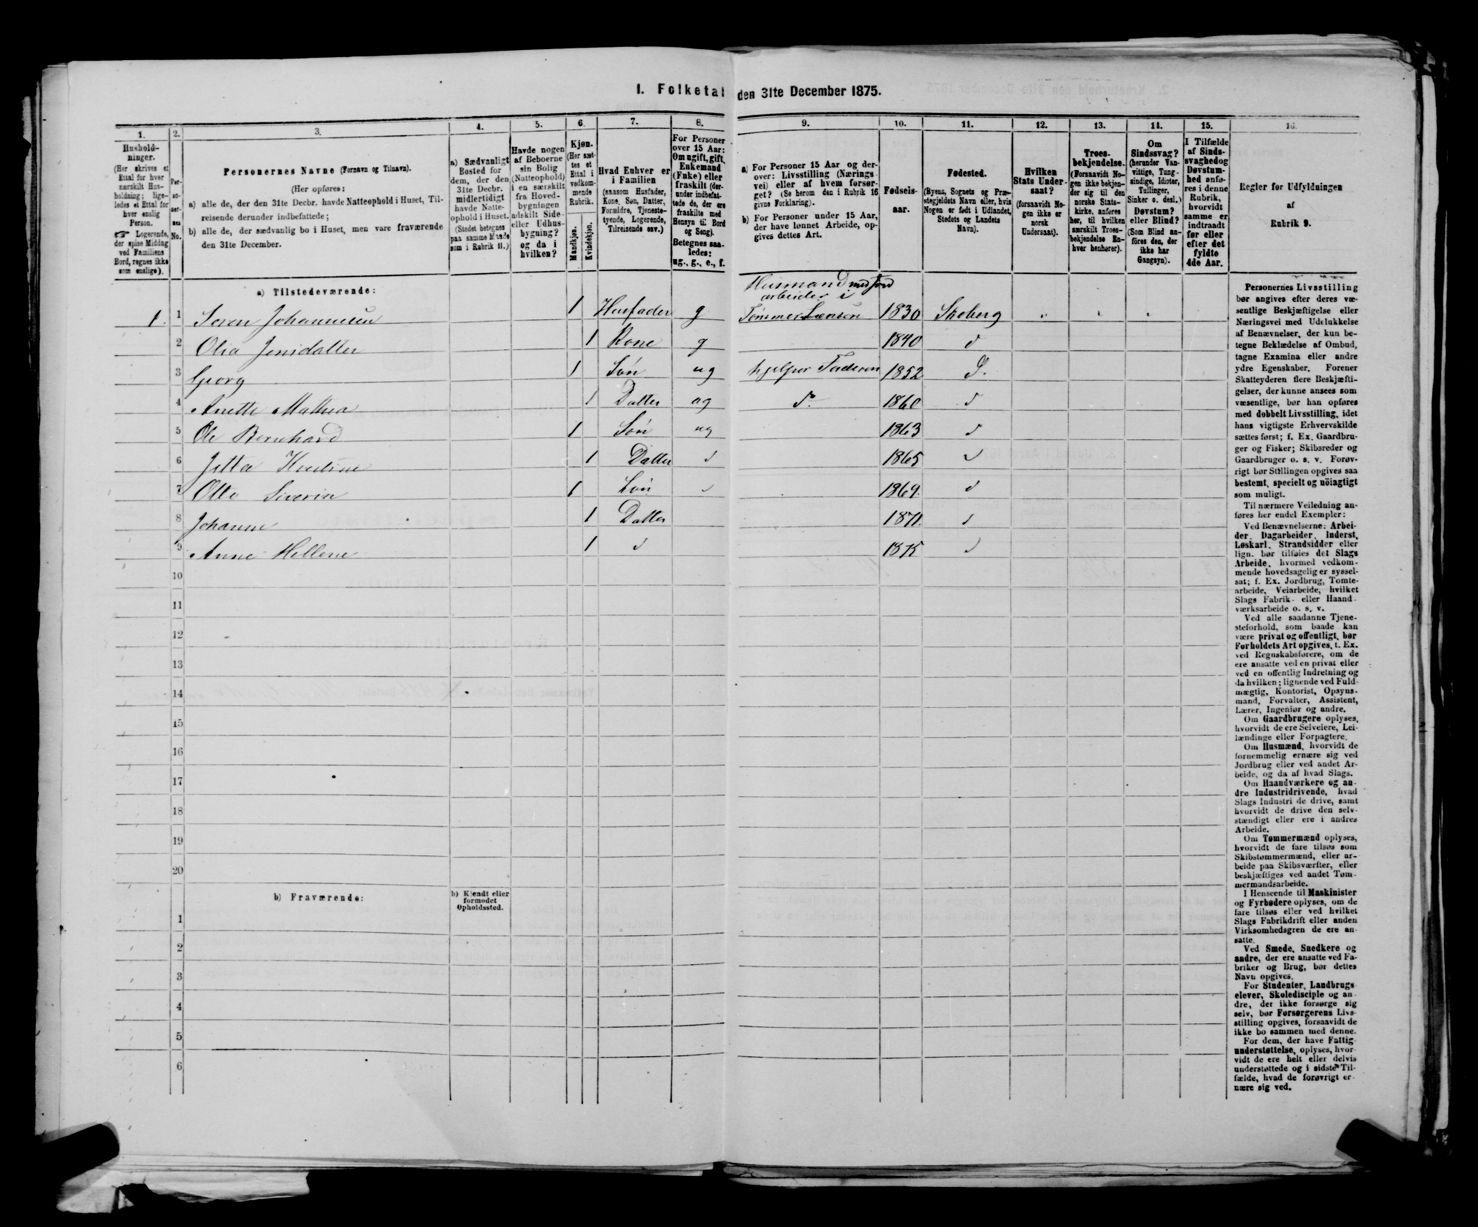 I. Folketal den 31te December 1875.
1. 2. 3. 4. 5. 6. 7. 8. 9. 10. 11. 12. 13. 14. 15. 16.
Hushold-
ninger.
(Her skrives et
Ettal for hver
særskilt Hus-
holdning; lige-
ledes et Ettal for
hver enslig
Person.
☞ Logerende,
der spise Middag
ved Familiens
Bord, regnes ikke
som enslige).
Per-
so-
ner-
nes
No.
Personernes Navne (Fornavn og Tilnavn).
(Her opføres:
a) alle de, der den 31te Decbr. havde Natteophold i Huset, Til-
reisende derunder indbefattede;
b) alle de, der sædvanlig bo i Huset, men vare fraværende
den 31te December.
a) Sædvanligt
Bosted for
dem, der den
31te Decbr.
midlertidigt
havde Natte-
ophold i Huset.
(Stedet betegnes
paa samme Maade
som i Rubrik 11.)
Havde nogen
af Beboerne
sin Bolig
(Natteophold)
i en særskilt
fra Hoved-
bygningen
adskilt Side-
eller Udhus-
bygning?
og da i
hvilken?
Kjøn.
(Her sæt-
tes et
Ettal i
vedkom-
mende
Rubrik.
Mandkjøn.
Kvindekjøn.
Hvad Enhver er
i Familien
(saasom Husfader,
Kone, Søn, Datter,
Forældre, Tjeneste-
tyende, Logerende,
Tilreisende osv.)
For Personer
over 15 Aar:
Om ugift, gift,
Enkemand
(Enke) eller
fraskilt (der-
under indbefat-
tede de, der ere
fraskilte med
Hensyn til Bord
og Seng).
Betegnes saa-
ledes:
ug., g., e., f.
a) For Personer 15 Aar og der-
over: Livsstilling (Nærings-
vei) eller af hvem forsør-
get? (Se herom den i Rubrik 16
givne Forklaring).
b) For Personer under 15 Aar,
der have lønnet Arbeide, op-
gives dettes Art.
Fødsels-
aar.
Fødested.
(Byens, Sognets og Præ-
stegjeldets Navn eller, hvis
Nogen er født i Udlandet,
Stedets og Landets
Navn).
Hvilken
Stats Under-
saat?
(forsaavidt No-
gen ikke er
norsk
Undersaat).
Troes-
bekjendelse.
(Forsaavidt No-
gen ikke bekjen-
der sig til den
norske Stats-
kirke, anføres
her, til hvilken
særskilt Troes-
bekjendelse En-
hver henhører).
Om
Sindssvag?
(herunder Van-
vittige, Tung-
sindige, Idioter,
Tullinger,
Sinker o. desl.)
Døvstum?
eller Blind?
(Som Blind an-
føres den, der
ikke har
Gangsyn).
I Tilfælde
af Sinds-
svaghed og
Døvstum-
hed anfø-
res i denne
Rubrik,
hvorvidt
samme er
indtraadt
før eller
efter det
fyldte
4de Aar.
Regler for Udfyldningen
af
Rubrik 9.
a) Tilstedeværende:
Husmand med Jord
arbeider i
1. 1 Søren Johannesen 1 Husfader g Tømmer 1830 Skoberg
2 Olea Jensdatter 1 Kone g 1840 d
3 Georg 1 Søn ug hjelper Faderen 1852 D.
4 Anette Mathea 1 Datter ug d. 1860 d
5 Ole Bernhard 1 Søn ug 1863 d
6 1 Datter d 1865 d
7 Otto Severin 1 Søn 1869. d
8 Johanne 1 Datter 1871. d
9 Anne Hellene 1 d 1875 d
10
11
12
13
14
15
16
17
18
19
20
b) Fraværende:
b) Kjendt eller
formodet
Opholdssted.
1
2
3
4
5
6
Personernes Livsstilling
bør angives efter deres væ-
sentlige Beskjæftigelse eller
Næringsvei med Udelukkelse
af Benævnelser, der kun be-
tegne Beklædelse af Ombud,
tagne Examina eller andre
ydre Egenskaber. Forener
Skatteyderen flere Beskjæfti-
gelser, der kunne ansees som
væsentlige, bør han opføres
med dobbelt Livsstilling, idet
hans vigtigste Erhvervskilde
sættes først; f. Ex. Gaardbru-
ger og Fisker; Skibsreder og
Gaardbruger o. s. v. Forøv-
rigt bør Stillingen opgives saa
bestemt, specielt og nöiagtigt
som muligt.
Til nærmere Veiledning an-
føres her endel Exempler:
Ved Benævnelserne: Arbei-
der, Dagarbeider, Inderst,
Løskarl, Strandsidder eller
lign. bør tilføies det Slags
Arbeide, hvormed vedkom-
mende hovedsagelig er syssel-
sat; f. Ex. Jordbrug, Tomte-
arbeide, Veiarbeide, hvilket
Slags Fabrik- eller Haand-
værksarbeide o. s. v.
Ved alle saadanne Tjene-
steforhold, som baade kan
være privat og offentligt, bør
Forholdets Art opgives, t. Ex.
ved Regnskabsførere, om de
ere ansatte ved en privat eller
ved en offentlig Indretning og
da hvilken; lignende ved Fuld-
mægtig, Kontorist, Opsyns-
mand, Forvalter, Assistent,
Lærer, Ingeniør og andre.
Om Gaardbrugere oplyses,
hvorvidt de ere Selveiere, Lei-
lændinge eller Forpagtere.
Om Husmænd, hvorvidt de
fornemmelig ernære sig ved
Jordbrug eller ved andet Ar-
beide, og da af hvad Slags.
Om Haandværkere og an-
dre Industridrivende, hvad
Slags Industri de drive, samt
hvorvidt de drive den selv-
stændigt eller ere i andres
Arbeide.
Om Tømmermænd oplyses,
hvorvidt de fare tilsøs som
Skibstømmermænd, eller ar-
beide paa Skibsværfter, eller
beskjæftiges ved andet Tøm-
mermandsarbeide.
I Henseende til Maskinister
og Fyrbødere oplyses, om de
fare tilsøs eller ved hvilket
Slags Fabrikdrift eller anden
Virksomhedsgren de ere an-
satte.
Ved Smede, Snedkere og
andre, der ere ansatte ved Fa-
briker og Brug, bør dettes
Navn opgives.
For Studenter, Landbrugs-
elever, Skoledisciple og an-
dre, der ikke forsørge sig
selv, bør Forsørgerens Livs-
stilling opgives, forsaavidt de
ikke bo sammen med denne.
For dem, der have Fattig-
understøttelse, oplyses, hvor-
vidt de ere helt eller delvis
understøttede og i sidste Til-
fælde, hvad de forøvrigt er-
nære sig ved.